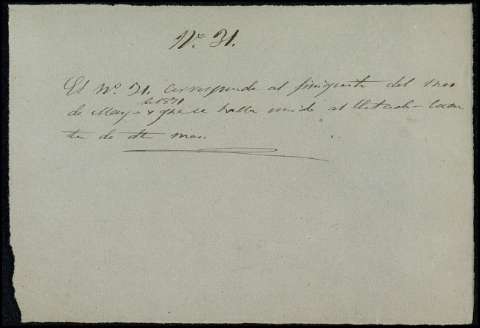 Nº 31.
El Nº 31. corresponde al finiquito del mes
de 1871
de Mayo y que se halla unido al
de dho mes.